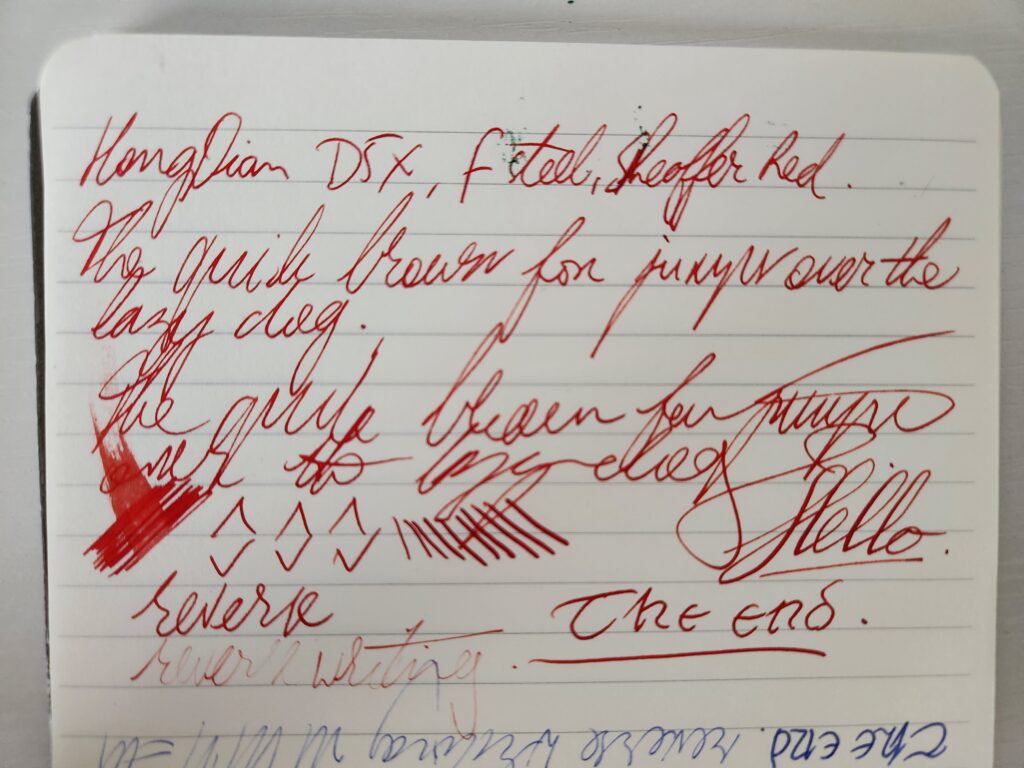 HongDian D5X, F steel, Sheaffer Red.
The quick brown fox jumps over the
lazy dog.
The quick brown fox jumps
over the lazy dog
Hello.
reverse The End.
reverse writing.
The End. reverse writing